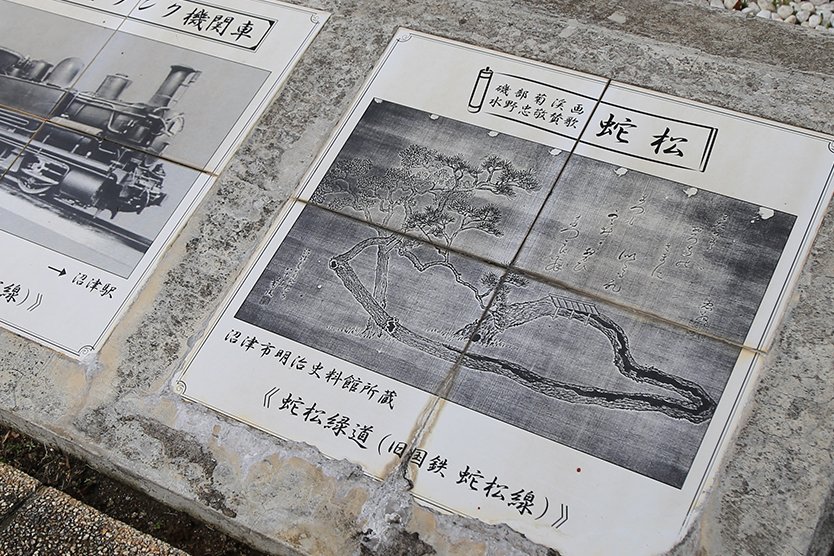 ンク機関車
→ 沼津駅
線)》
磯部菊渓画
水野忠敬賛歌
蛇松
沼津市明治史料館所蔵
《蛇松緑道(旧国鉄 蛇松線)》